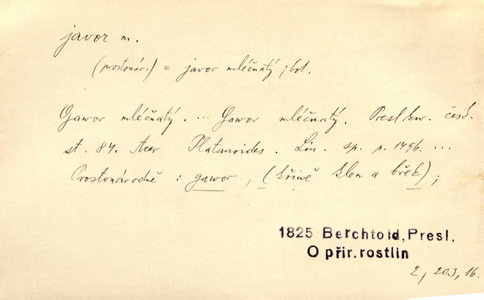 javor m.
(prostonár.) = javor mléčnatý; bot.
Gawor mléčnatý. ... Gawor mléčnatý. Presl kw. česk.
st. 84. Acer Platanoides. Lin. sp. p. 1496. ...
Prostonárodně: gawor, ( klen a břek);
1825 Berchtold, Presl,
O přir. rostlin
2, 203, 16.